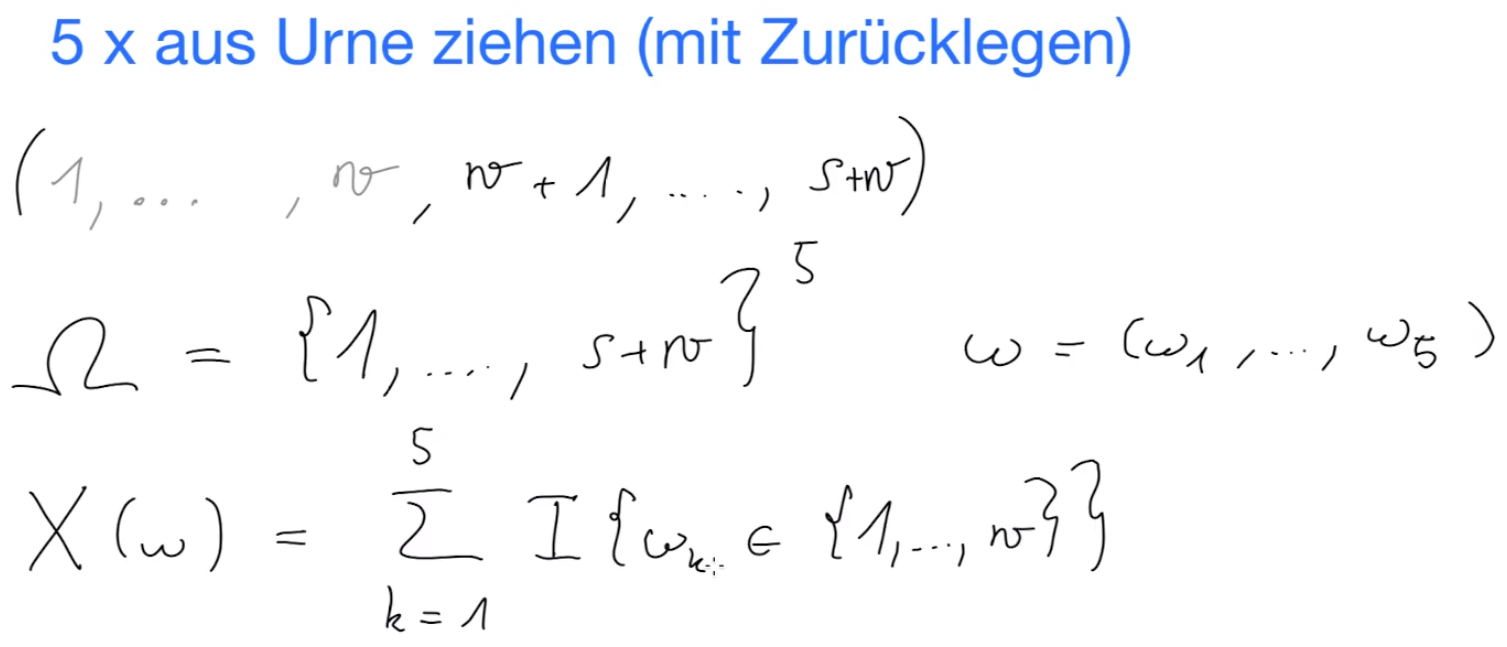 5 x aus Urne ziehen (mit Zurücklegen)
(1, ... , w, w + 1, ...., s+w)
Ω = {1, ...., s+w}^5 ω = (ω_1, ..., ω_5)
X(ω) = ∑_{k=1}^{5} I{ω_k ∈ {1, ..., w}}